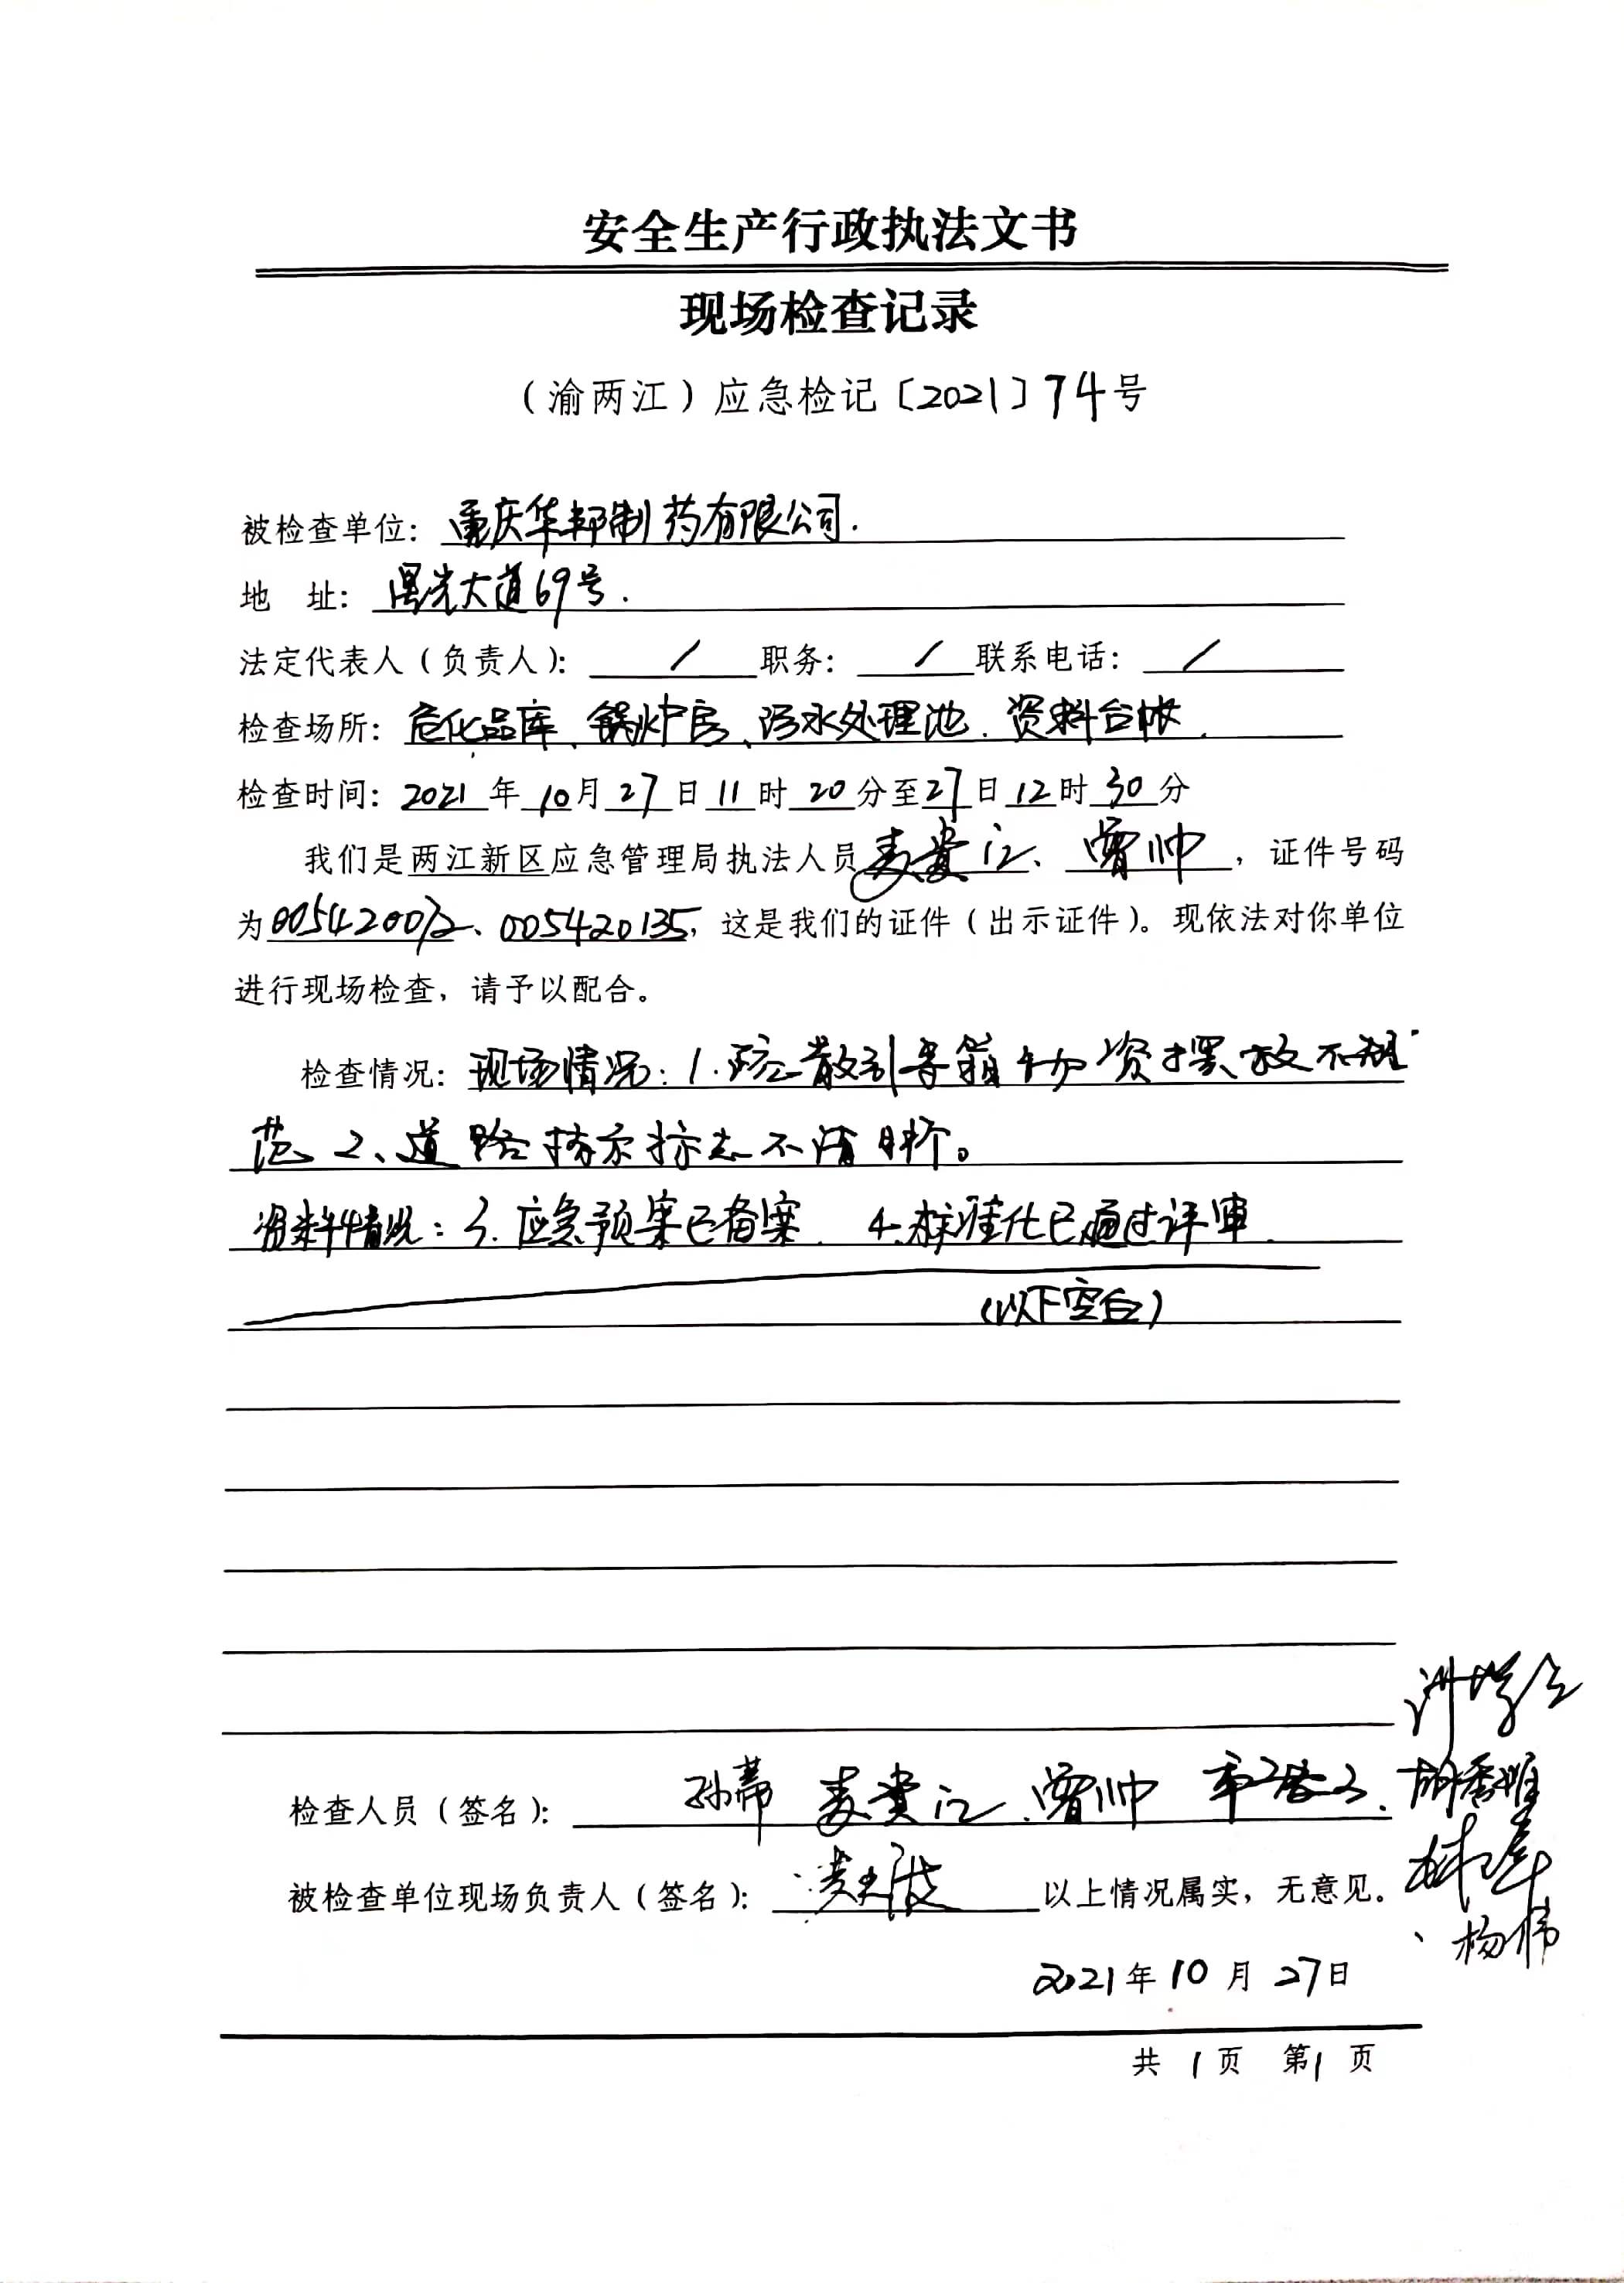 安全生产行政执法文书
现场检查记录
（渝两江）应急检记〔2021〕74号
被检查单位：重庆华邦制药有限公司.
地 址：星光大道69号.
法定代表人（负责人）：/ 职务：/ 联系电话：/
检查场所：危化品库、锅炉房、污水处理池、资料台帐.
检查时间：2021年10月27日11时20分至27日12时30分
我们是两江新区应急管理局执法人员麦贵江、曾帅，证件号码
为005420072、005420135，这是我们的证件（出示证件）。现依法对你单位
进行现场检查，请予以配合。
检查情况：现场情况：1.疏散引导箱物资摆放不规
范 2、道路指示标志不清晰。
资料情况：3.应急预案已备案. 4.标准化已通过评审.
（以下空白）
检查人员（签名）：孙芾 麦贵江、曾帅
被检查单位现场负责人（签名）： 以上情况属实，无意见。
杨伟
2021年10月27日
共1页 第1页